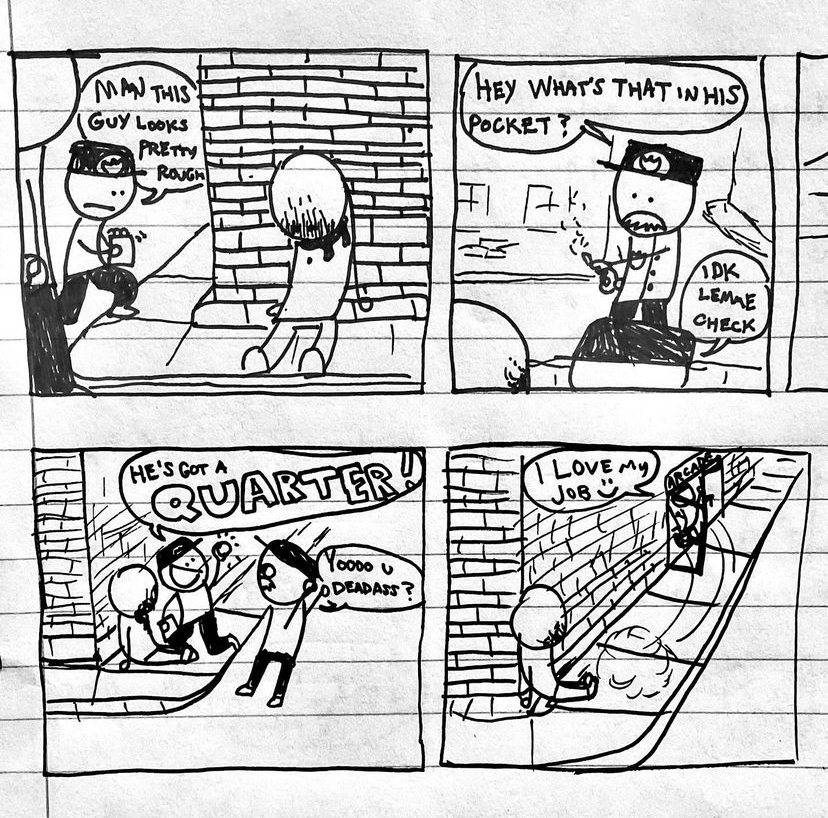 MAN THIS
GUY LOOKS
PRETTY
ROUGH
HEY WHAT'S THAT IN HIS
POCKET?
IDK
LEMME
CHECK
HE'S GOT A
QUARTER!
YOOOO U
DEADASS?
I LOVE MY
JOB
ARCADE